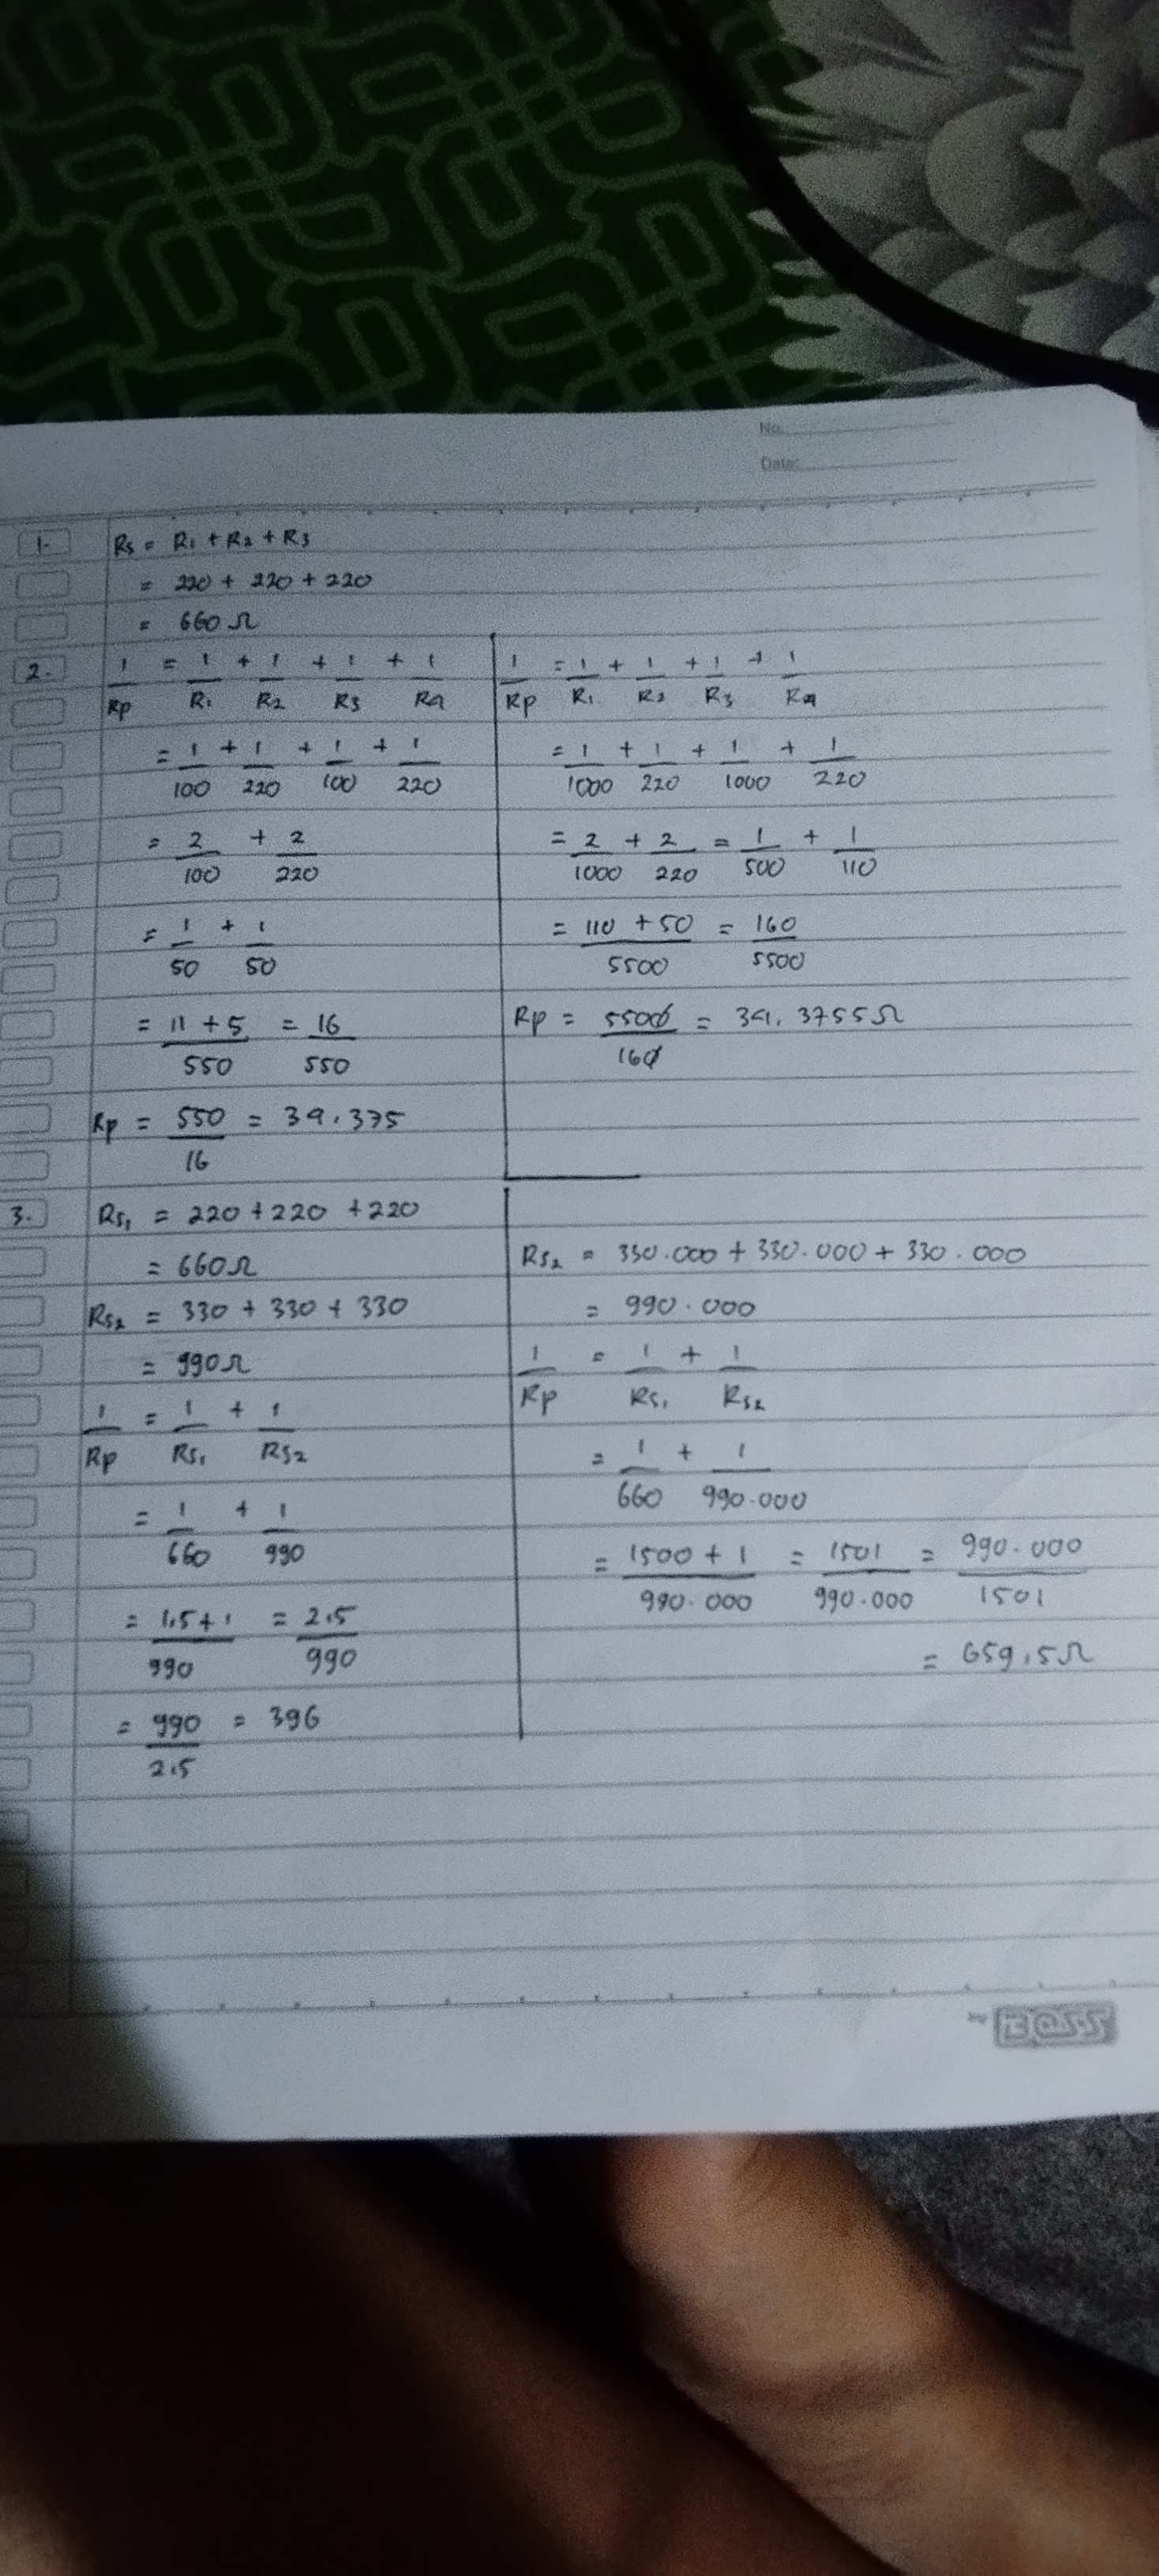 No:
Date:
1. Rs = R1 + R2 + R3
= 220 + 220 + 220
= 660 Ω
2. 1/Rp = 1/R1 + 1/R2 + 1/R3 + 1/R4
= 1/100 + 1/220 + 1/100 + 1/220
= 2/100 + 2/220
= 1/50 + 1/50
= 11 + 5/550 = 16/550
Rp = 550/16 = 34.375
1/Rp = 1/R1 + 1/R2 + 1/R3 + 1/R4
= 1/1000 + 1/220 + 1/1000 + 1/220
= 2/1000 + 2/220 = 1/500 + 1/110
= 110 + 50/5500 = 160/5500
Rp = 5500/160 = 34.3755Ω
3. Rs1 = 220 + 220 + 220
= 660Ω
Rs2 = 330 + 330 + 330
= 990Ω
1/Rp = 1/Rs1 + 1/Rs2
= 1/660 + 1/990
= 1.5 + 1/990 = 2.5/990
= 990/2.5 = 396
Rs2 = 330.000 + 330.000 + 330.000
= 990.000
1/Rp = 1/Rs1 + 1/Rs2
= 1/660 + 1/990.000
= 1500 + 1/990.000 = 1501/990.000 = 990.000/1501
= 659,5Ω
BOSS